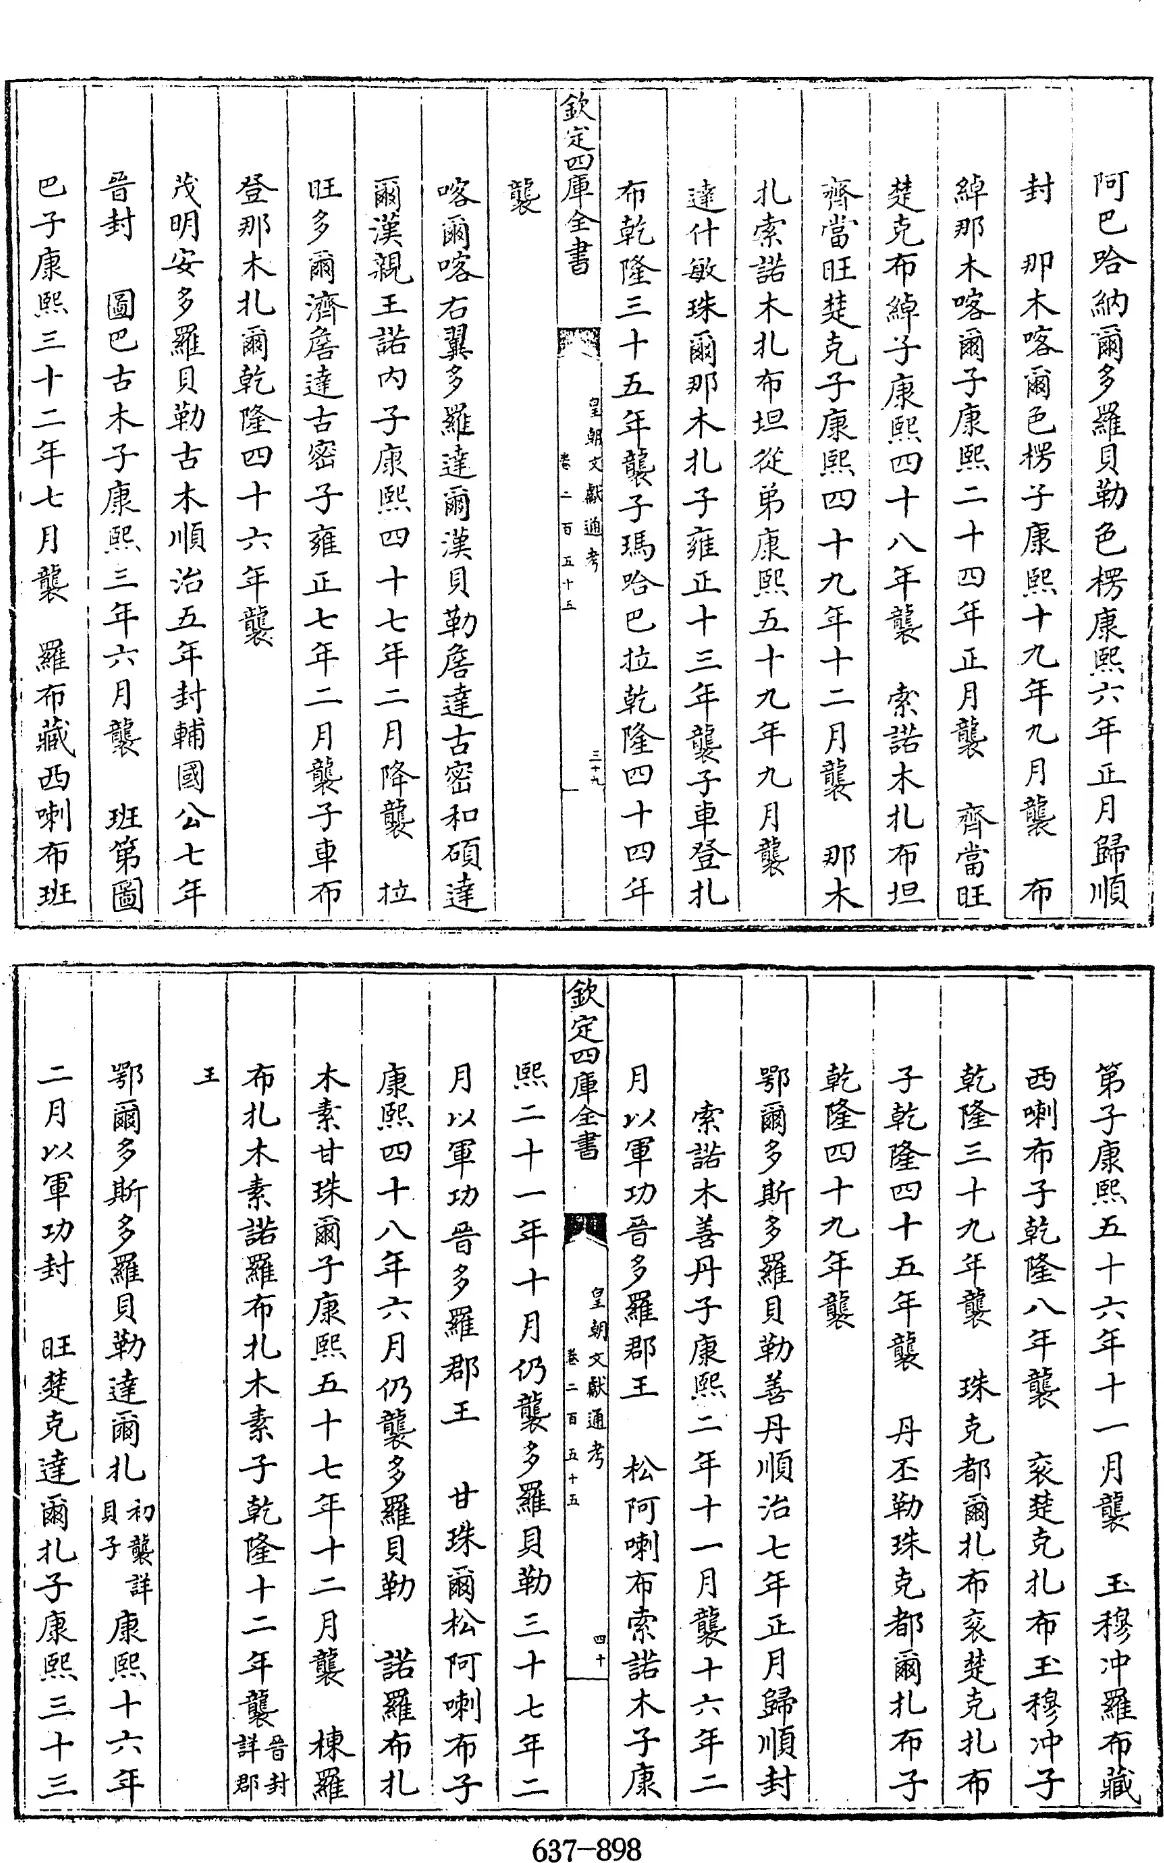 阿巴哈納爾多羅貝勒色楞康熙六年正月歸順
封　那木喀爾色楞子康熙十九年九月襲　布
綽那木喀爾子康熙二十四年正月襲　齊當旺
楚克布綽子康熙四十八年襲　索諾木扎布坦
齊當旺楚克子康熙四十九年十二月襲　那木
扎索諾木扎布坦從弟康熙五十九年九月襲
達什敏珠爾那木扎子雍正十三年襲子車登扎
布乾隆三十五年襲子瑪哈巴拉乾隆四十四年
欽定四庫全書　皇朝文獻通考卷二百五十五　三十九
襲
喀爾喀右翼多羅達爾漢貝勒詹達古密和碩達
爾漢親王諾內子康熙四十七年二月降襲　拉
旺多爾濟詹達古密子雍正七年二月襲子車布
登那木扎爾乾隆四十六年襲
茂明安多羅貝勒古木順治五年封輔國公七年
晉封　圖巴古木子康熙三年六月襲　班第圖
巴子康熙三十二年七月襲　羅布藏西喇布班
第子康熙五十六年十一月襲　玉穆冲羅布藏
西喇布子乾隆八年襲　衮楚克扎布玉穆冲子
乾隆三十九年襲　珠克都爾扎布衮楚克扎布
子乾隆四十五年襲　丹丕勒珠克都爾扎布子
乾隆四十九年襲
鄂爾多斯多羅貝勒善丹順治七年正月歸順封
索諾木善丹子康熙二年十一月襲十六年二
月以軍功晉多羅郡王　松阿喇布索諾木子康
欽定四庫全書　皇朝文獻通考卷二百五十五　四十
熙二十一年十月仍襲多羅貝勒三十七年二
月以軍功晉多羅郡王　甘珠爾松阿喇布子
康熙四十八年六月仍襲多羅貝勒　諾羅布扎
木素甘珠爾子康熙五十七年十二月襲　棟羅
布扎木素諾羅布扎木素子乾隆十二年襲晉封詳郡
王
鄂爾多斯多羅貝勒達爾扎初襲詳貝子康熙十六年
二月以軍功封　旺楚克達爾扎子康熙三十三
637-898